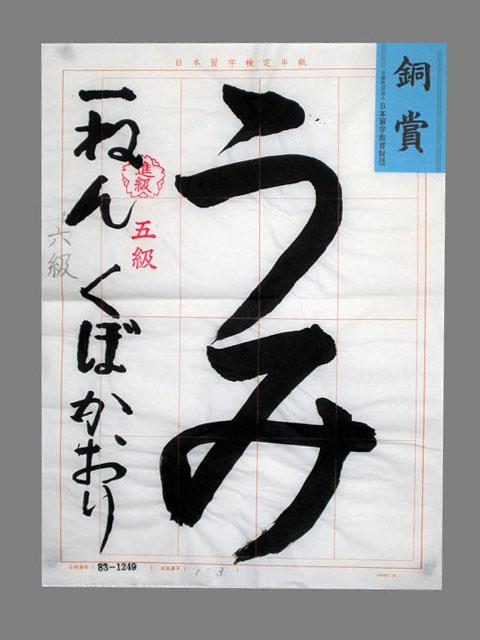 日本習字検定半紙
銅賞
公益財団法人 日本習字教育財団
うみ
一ねん くぼかおり
進級
五級
六級
83-1249
1-3